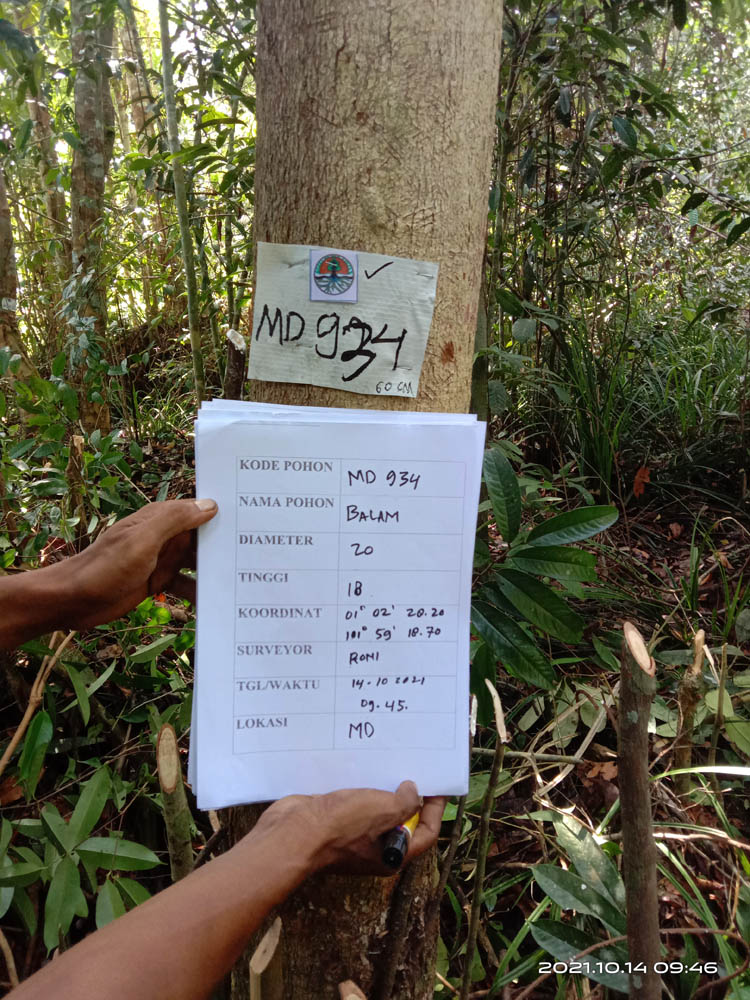 MD 934
60 CM
KODE POHON MD 934
NAMA POHON BALAM
DIAMETER 20
TINGGI 18
KOORDINAT 01° 02' 20.20
101° 59' 18.70
SURVEYOR RONI
TGL/WAKTU 14-10 2021
09.45.
LOKASI MD
2021.10.14 09:46